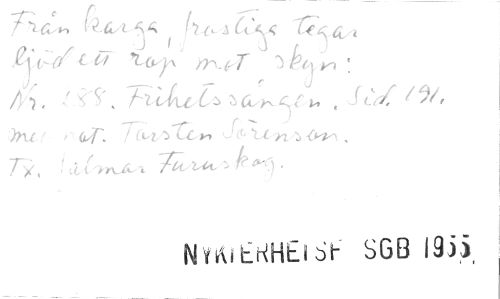 Från karga, frostiga tegar
ljöd ett rop mot skyn:
Nr. 288. Frihetssången. Sid. 191.
med not. Torsten Sörenson.
Tx. Hilmar Furuskog.
NYKTERHETSF SGB 1955.